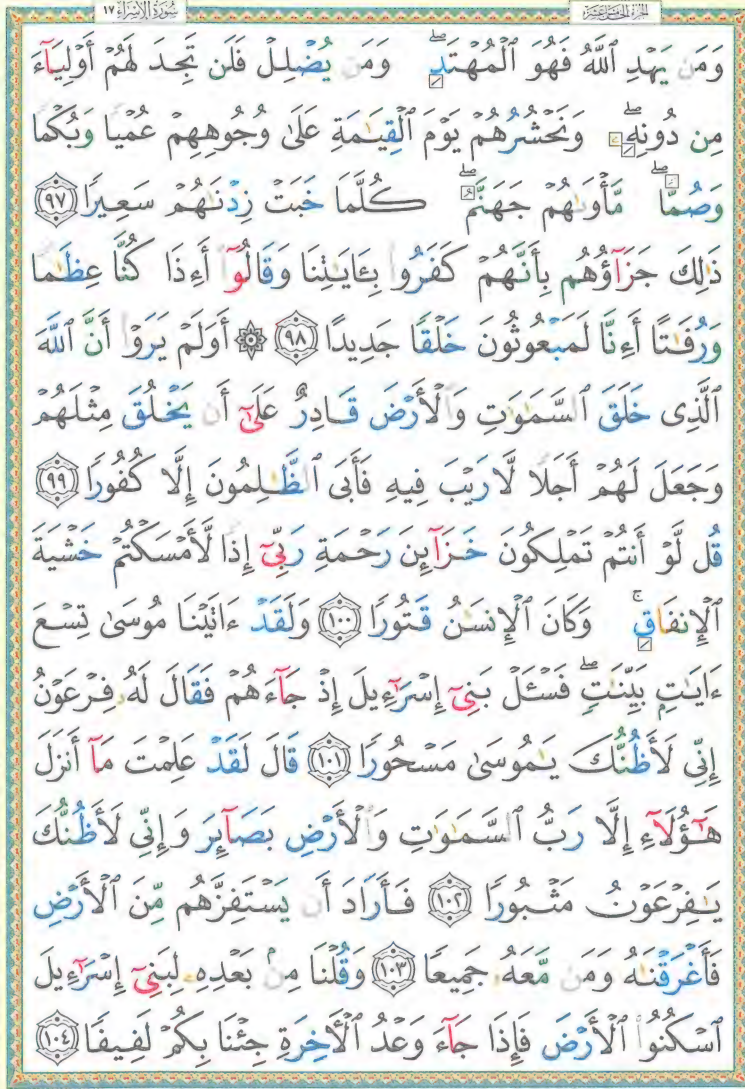 سُورَةُ الإِسۡرَاءِ ١٧ الجُزۡءُ الخَامِسَ عَشَرَ
وَمَن يَهۡدِ ٱللَّهُ فَهُوَ ٱلۡمُهۡتَدِۖ وَمَن يُضۡلِلۡ فَلَن تَجِدَ لَهُمۡ أَوۡلِيَآءَ
مِن دُونِهِۦۖ وَنَحۡشُرُهُمۡ يَوۡمَ ٱلۡقِيَٰمَةِ عَلَىٰ وُجُوهِهِمۡ عُمۡيٗا وَبُكۡمٗا
وَصُمّٗاۖ مَّأۡوَىٰهُمۡ جَهَنَّمُۖ كُلَّمَا خَبَتۡ زِدۡنَٰهُمۡ سَعِيرٗا ٩٧
ذَٰلِكَ جَزَآؤُهُم بِأَنَّهُمۡ كَفَرُواْ بِـَٔايَٰتِنَا وَقَالُوٓاْ أَءِذَا كُنَّا عِظَٰمٗا
وَرُفَٰتًا أَءِنَّا لَمَبۡعُوثُونَ خَلۡقٗا جَدِيدًا ٩٨ ۞ أَوَلَمۡ يَرَوۡاْ أَنَّ ٱللَّهَ
ٱلَّذِي خَلَقَ ٱلسَّمَٰوَٰتِ وَٱلۡأَرۡضَ قَادِرٌ عَلَىٰٓ أَن يَخۡلُقَ مِثۡلَهُمۡ
وَجَعَلَ لَهُمۡ أَجَلٗا لَّا رَيۡبَ فِيهِ فَأَبَى ٱلظَّٰلِمُونَ إِلَّا كُفُورٗا ٩٩
قُل لَّوۡ أَنتُمۡ تَمۡلِكُونَ خَزَآئِنَ رَحۡمَةِ رَبِّيٓ إِذٗا لَّأَمۡسَكۡتُمۡ خَشۡيَةَ
ٱلۡإِنفَاقِۚ وَكَانَ ٱلۡإِنسَٰنُ قَتُورٗا ١٠٠ وَلَقَدۡ ءَاتَيۡنَا مُوسَىٰ تِسۡعَ
ءَايَٰتِۭ بَيِّنَٰتٖۖ فَسۡـَٔلۡ بَنِيٓ إِسۡرَٰٓءِيلَ إِذۡ جَآءَهُمۡ فَقَالَ لَهُۥ فِرۡعَوۡنُ
إِنِّي لَأَظُنُّكَ يَٰمُوسَىٰ مَسۡحُورٗا ١٠١ قَالَ لَقَدۡ عَلِمۡتَ مَآ أَنزَلَ
هَٰٓؤُلَآءِ إِلَّا رَبُّ ٱلسَّمَٰوَٰتِ وَٱلۡأَرۡضِ بَصَآئِرَ وَإِنِّي لَأَظُنُّكَ
يَٰفِرۡعَوۡنُ مَثۡبُورٗا ١٠٢ فَأَرَادَ أَن يَسۡتَفِزَّهُم مِّنَ ٱلۡأَرۡضِ
فَأَغۡرَقۡنَٰهُ وَمَن مَّعَهُۥ جَمِيعٗا ١٠٣ وَقُلۡنَا مِنۢ بَعۡدِهِۦ لِبَنِيٓ إِسۡرَٰٓءِيلَ
ٱسۡكُنُواْ ٱلۡأَرۡضَ فَإِذَا جَآءَ وَعۡدُ ٱلۡأٓخِرَةِ جِئۡنَا بِكُمۡ لَفِيفٗا ١٠٤